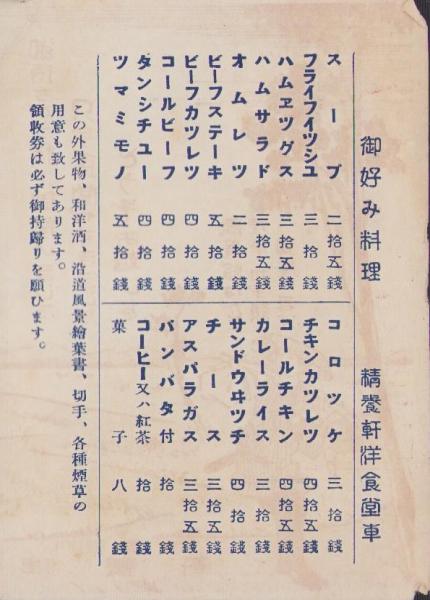 御好み料理　精養軒洋食堂車
スープ　二拾五錢
フライフイツシユ　三拾錢
ハムエツグス　三拾五錢
ハムサラド　三拾五錢
オムレツ　二拾錢
ビーフステーキ　五拾錢
ビーフカツレツ　四拾錢
コールビーフ　四拾錢
タンシチユー　四拾錢
ツマミモノ　五拾錢
コロツケ　三拾錢
チキンカツレツ　四拾五錢
コールチキン　四拾五錢
カレーライス　三拾五錢
サンドウヰツチ　四拾錢
チース　三拾五錢
アスパラガス　三拾五錢
パンバタ付　拾錢
コーヒー又ハ紅茶　拾錢
菓子　八錢
この外果物、和洋酒、沿道風景繪葉書、切手、各種煙草の
用意も致してあります。
領收券は必ず御持歸りを願ひます。